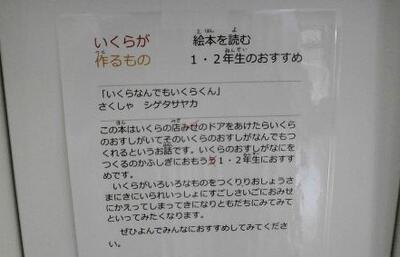 いくらが 絵本を読む
作るもの 1・2年生のおすすめ
「いくらなんでもいくらくん」
さくしゃ シゲタサヤカ
この本はいくらの店みせのドアをあけたらいくら
のおすしがいてそのいくらのおすしがなんでもつ
くれるというお話です。いくらのおすしがなにを
つくるのかふしぎにおもう1・2年生におすす
めです。
いくらがいろいろなものをつくりりおしょうさ
まにきにいられいっしょにすごしさいごにおみせ
にかえってしまってきになりともだちにみてみて
といってみたくなります。
ぜひよんでみんなにおすすめしてみてくださ
い。